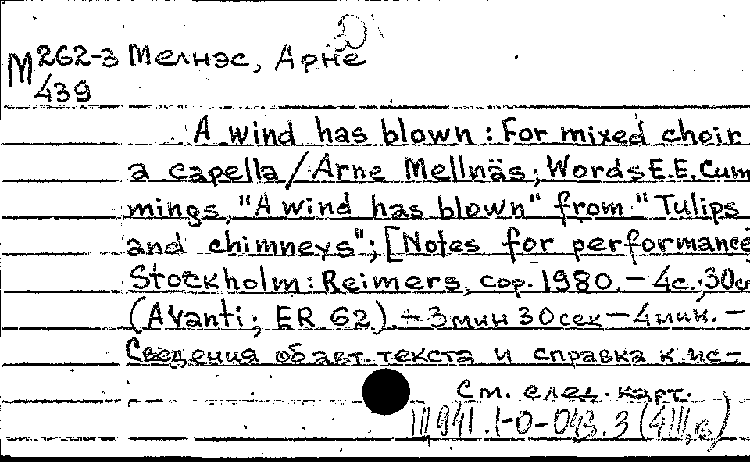 М262-3 Мелнэс, Арне
/439
A wind has blown : For mixed choir
a capella / Arne Mellnäs; Words E.E. Cum
mings, "A wind has blown" from "Tulips
and chimneys"; [Notes for performance
Stockholm: Reimers, cop. 1980. – 4с.; 30см
(Avanti; ER 62). – 3мин 30сек – 4мин. –
Сведения об авт. текста и справка к ис-
См. след. карт.